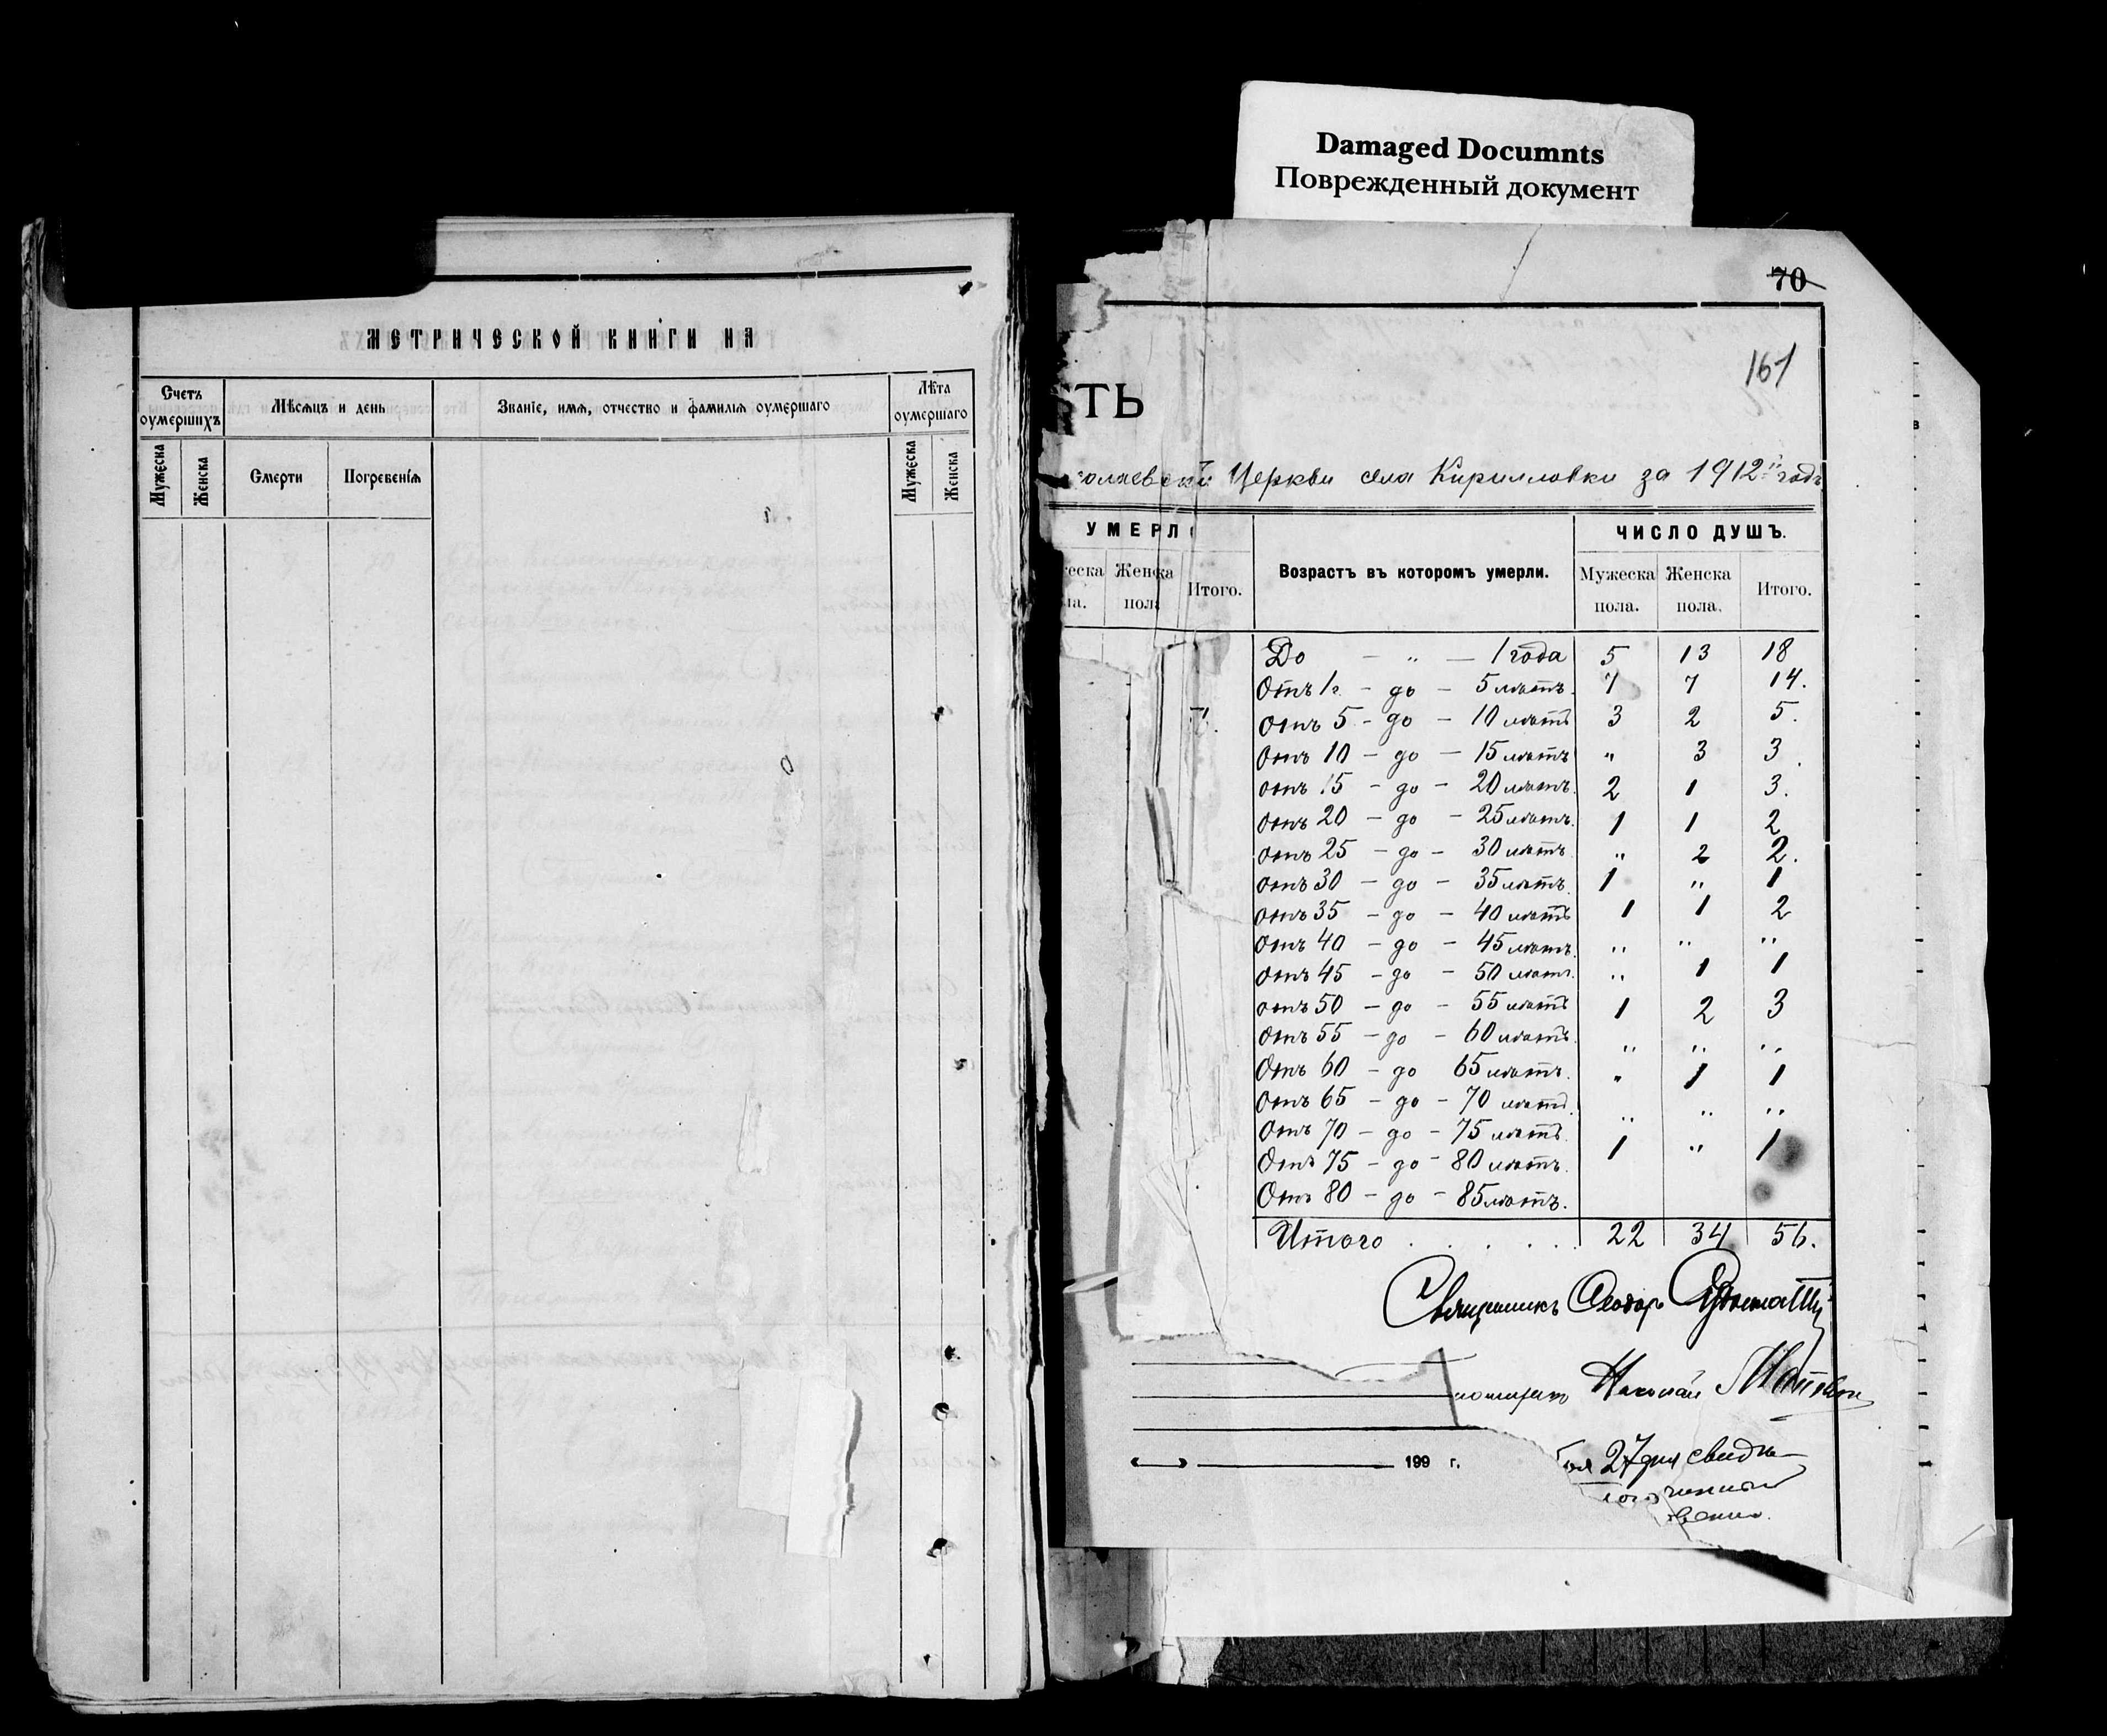 Damaged Documnts
Поврежденный документ
МЕТРИЧЕСКОЙ КНИГИ НА
Счетъ оумершихъ
Мѣсяцъ и день
Званіе, имя, отчество и фамилія оумершаго
Лѣта оумершаго
Мужеска
Женска
Смерти
Погребенія
Мужеска
Женска
70
161
СТЬ
олаевской Церкви села Кирилловки за 1912й годъ
УМЕРЛО
Возрастъ въ которомъ умерли.
ЧИСЛО ДУШЪ.
еска ла.
Женска пола
Итого.
Мужеска пола.
Женска пола.
Итого.
До — „ — 1 года 5 13 18
Отъ 1 г. — до — 5 лѣтъ. 7 7 14.
отъ 5 — до — 10 лѣтъ 3 2 5.
отъ 10 — до — 15 лѣтъ „ 3 3.
отъ 15 — до — 20 лѣтъ. 2 1 3.
отъ 20 — до — 25 лѣтъ. 1 1 2
отъ 25 — до — 30 лѣтъ „ 2 2.
отъ 30 — до — 35 лѣтъ. 1 „ 1
отъ 35 — до — 40 лѣтъ 1 1 2
отъ 40 — до — 45 лѣтъ. „ „ „
отъ 45 — до — 50 лѣтъ. „ 1 1
отъ 50 — до — 55 лѣтъ 1 2 3
отъ 55 — до — 60 лѣтъ. „ „ „
Отъ 60 — до 65 лѣтъ. „ 1 1
Отъ 65 — до — 70 лѣтъ. „ „ „
Отъ 70 — до — 75 лѣтъ. 1 „ 1
Отъ 75 — до — 80 лѣтъ.
Отъ 80 — до — 85 лѣтъ.
Итого . . . . . . 22 34 56.
Священникъ Ѳеодоръ
Николай
199 г.
27 дня свидѣ-